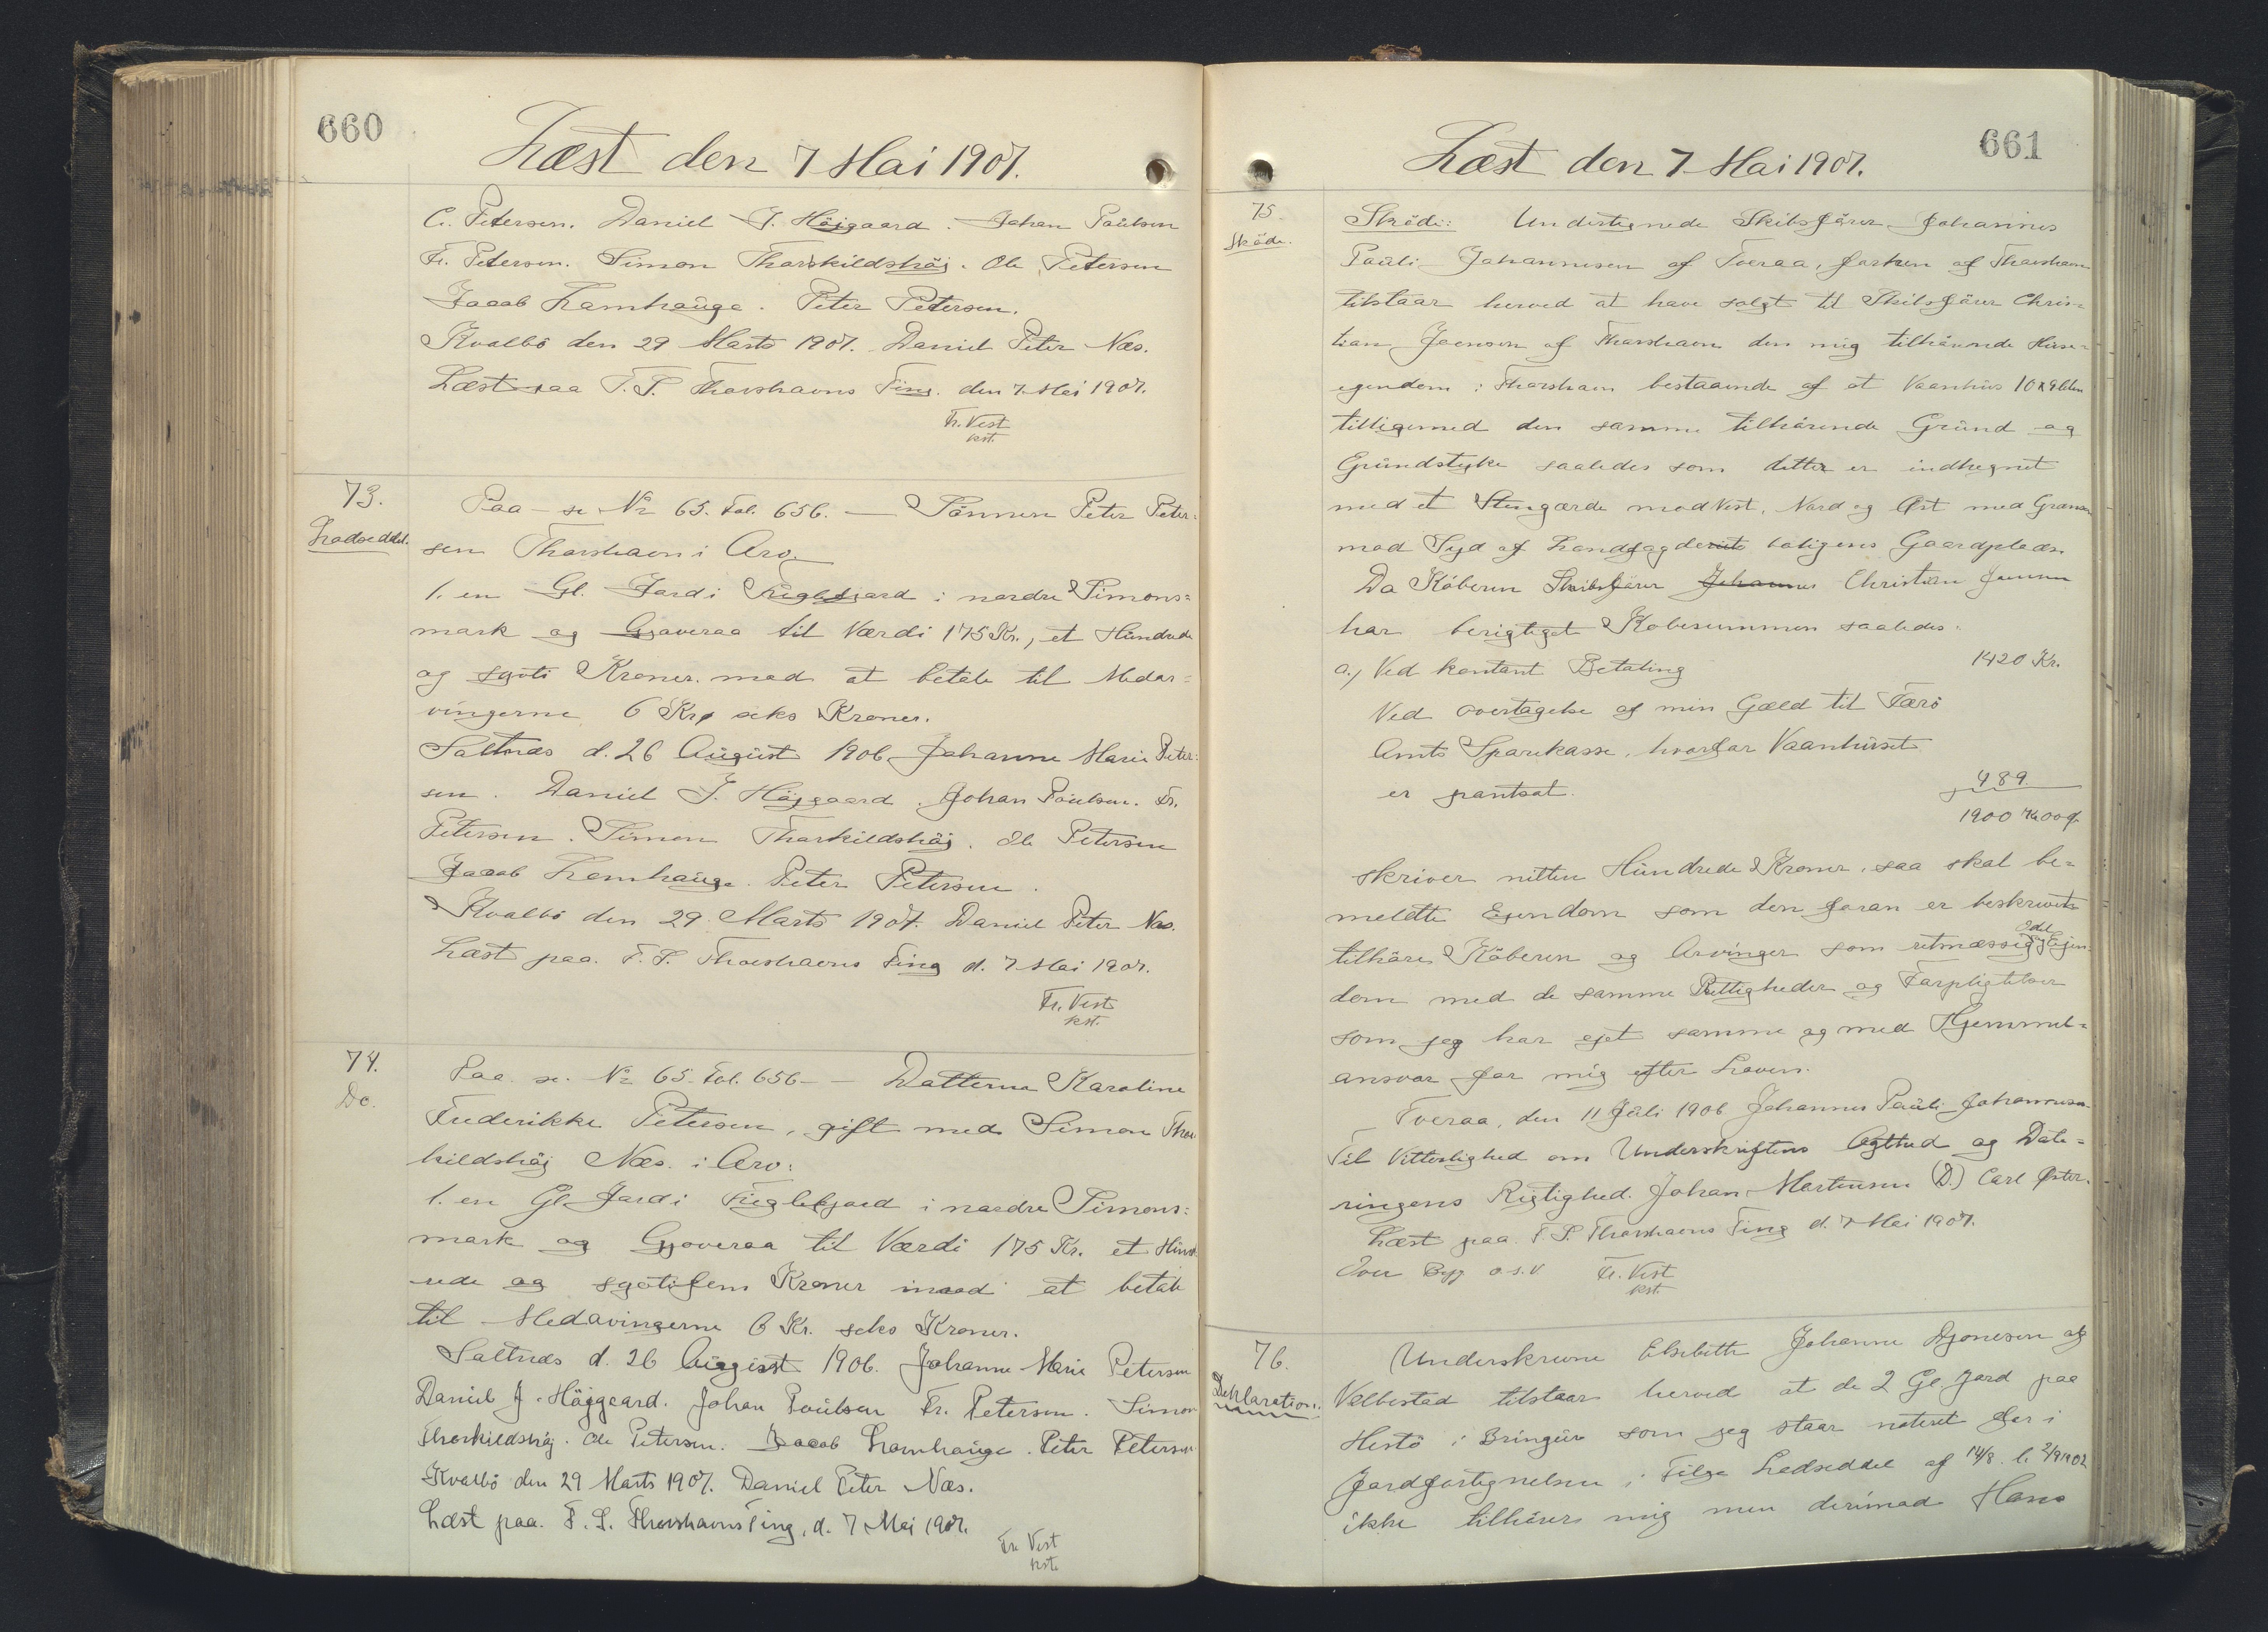 660
Læst den 7 Mai 1907.
C. Petersen. Daniel J. Höjgaard. Johan Poulsen
Fr. Petersen. Simon Thorkildshöj. Ole Petersen
Jacob Lamhauge. Peter Petersen.
Kvalbö den 29 Marts 1907. Daniel Peter Næs.
Læst paa F. S. Thorshavns Ting. den 7 Mai 1907.
Fr. Vest
kst.
73.
Lodseddel.
Paa - se No 65. Fol. 656. — Sönnen Peter Peter-
sen Thorshavn i Arv.
1. en Gl. Jord i Fuglefjord i nordre Simons=
mark og Gjoveraa til Værdi 175 Kr., et Hundrede
og syvti Kroner. mod at betale til Medar=
vingerne 6 Kr seks Kroner.
Saltnæs d. 26 August 1906 Johanne Marie Peter=
sen. Daniel J. Höjgaard. Johan Poulsen. Fr.
Petersen. Simon Thorkildshöj. Ole Petersen
Jacob Lamhauge. Peter Petersen.
Kvalbö den 29. Marts 1907. Daniel Peter Næs.
Læst paa. F. S. Thorshavns Ting d. 7 Mai 1907.
Fr. Vest
kst.
74.
Do.
Paa. se. No 65. Fol. 656 — Datteren Karoline
Frederikke Petersen, gift med Simon Thor
kildshöj Næs. i Arv:
1. en Gl Jord i Fuglefjord i nordre Simons=
mark og Gjoveraa til Værdi 175 Kr. et Hund
rede og syvtifem Kroner imod at betale
til Medarvingerne 6 Kr. seks Kroner.
Saltnæs d. 26 August 1906. Johanne Marie Petersen
Daniel J. Höjgaard. Johan Poulsen Fr. Petersen. Simon
Thorkildshöj. Ole Petersen. Jacob Lamhauge. Peter Petersen
Kvalbö den 29 Marts 1907. Daniel Peter Næs.
Læst paa. F. S. Thorshavns Ting, d. 7 Mai 1907.
Fr. Vest
kst.
661
Læst den 7 Mai 1907.
75.
Sköde.
Sköde: Undertegnede Skibsförer Johannes
Pauli Johannesen af Tveraa, forhen af Thorshavn
tilstaar herved at have solgt til Skibsförer Chris=
tian Joensen af Thorshavn den mig tilhörende Huse=
egendom i Thorshavn bestaaende af et Vaanhus 10 x 9 Alen
tilligemed den samme tilhörende Grund og
Grundstykke saaledes som dette er indhegnet
med et Stengærde mod Vest, Nord og Öst med Grænsen
mod Syd af Landfogderiets boligens Gaardplads.
Da Köberen Skibsförer Johannes Christian Joensen
har berigtiget Köbesummen saaledes.
a., Ved kontant Betaling 1420 Kr.
Ved overtagelse af min Gæld til Færö
Amts Sparekasse, hvorfor Vaanhuset
er pantsat. 489
1900 Kr. 00 Ø
skriver nitten Hundrede Kroner, saa skal be=
meldte Ejendom som den foran er beskrevet
tilhöre Köberen og Arvinger som retmæssig Odel Ejen=
dom med de samme Rettigheder og Forpligtelser
som jeg har ejet samme og med Hjemmel=
ansvar for mig efter Loven.
Tveraa, den 11 Juli 1906 Johannes Pauli Johannesen
Til Vitterlighed om Underskriftens Ægthed og Date=
ringens Rigtighed. Johan Mortensen (D.) Carl Öster.
Læst paa. F. S. Thorshavns Ting d. 7 Mai 1907.
Over Byg o.s.v. Fr. Vest
kst.
76.
Deklaration.
Underskrevne Elsebeth Johanne Djonesen af
Velbestad tilstaar herved at de 2 Gl Jord paa
Hestö i Bringur som jeg staar noteret for i
Jordfortegnelsen i Følge Lodseddel af 14/8. l. 2/9 1902
ikke tilhörer mig men derimod Hans